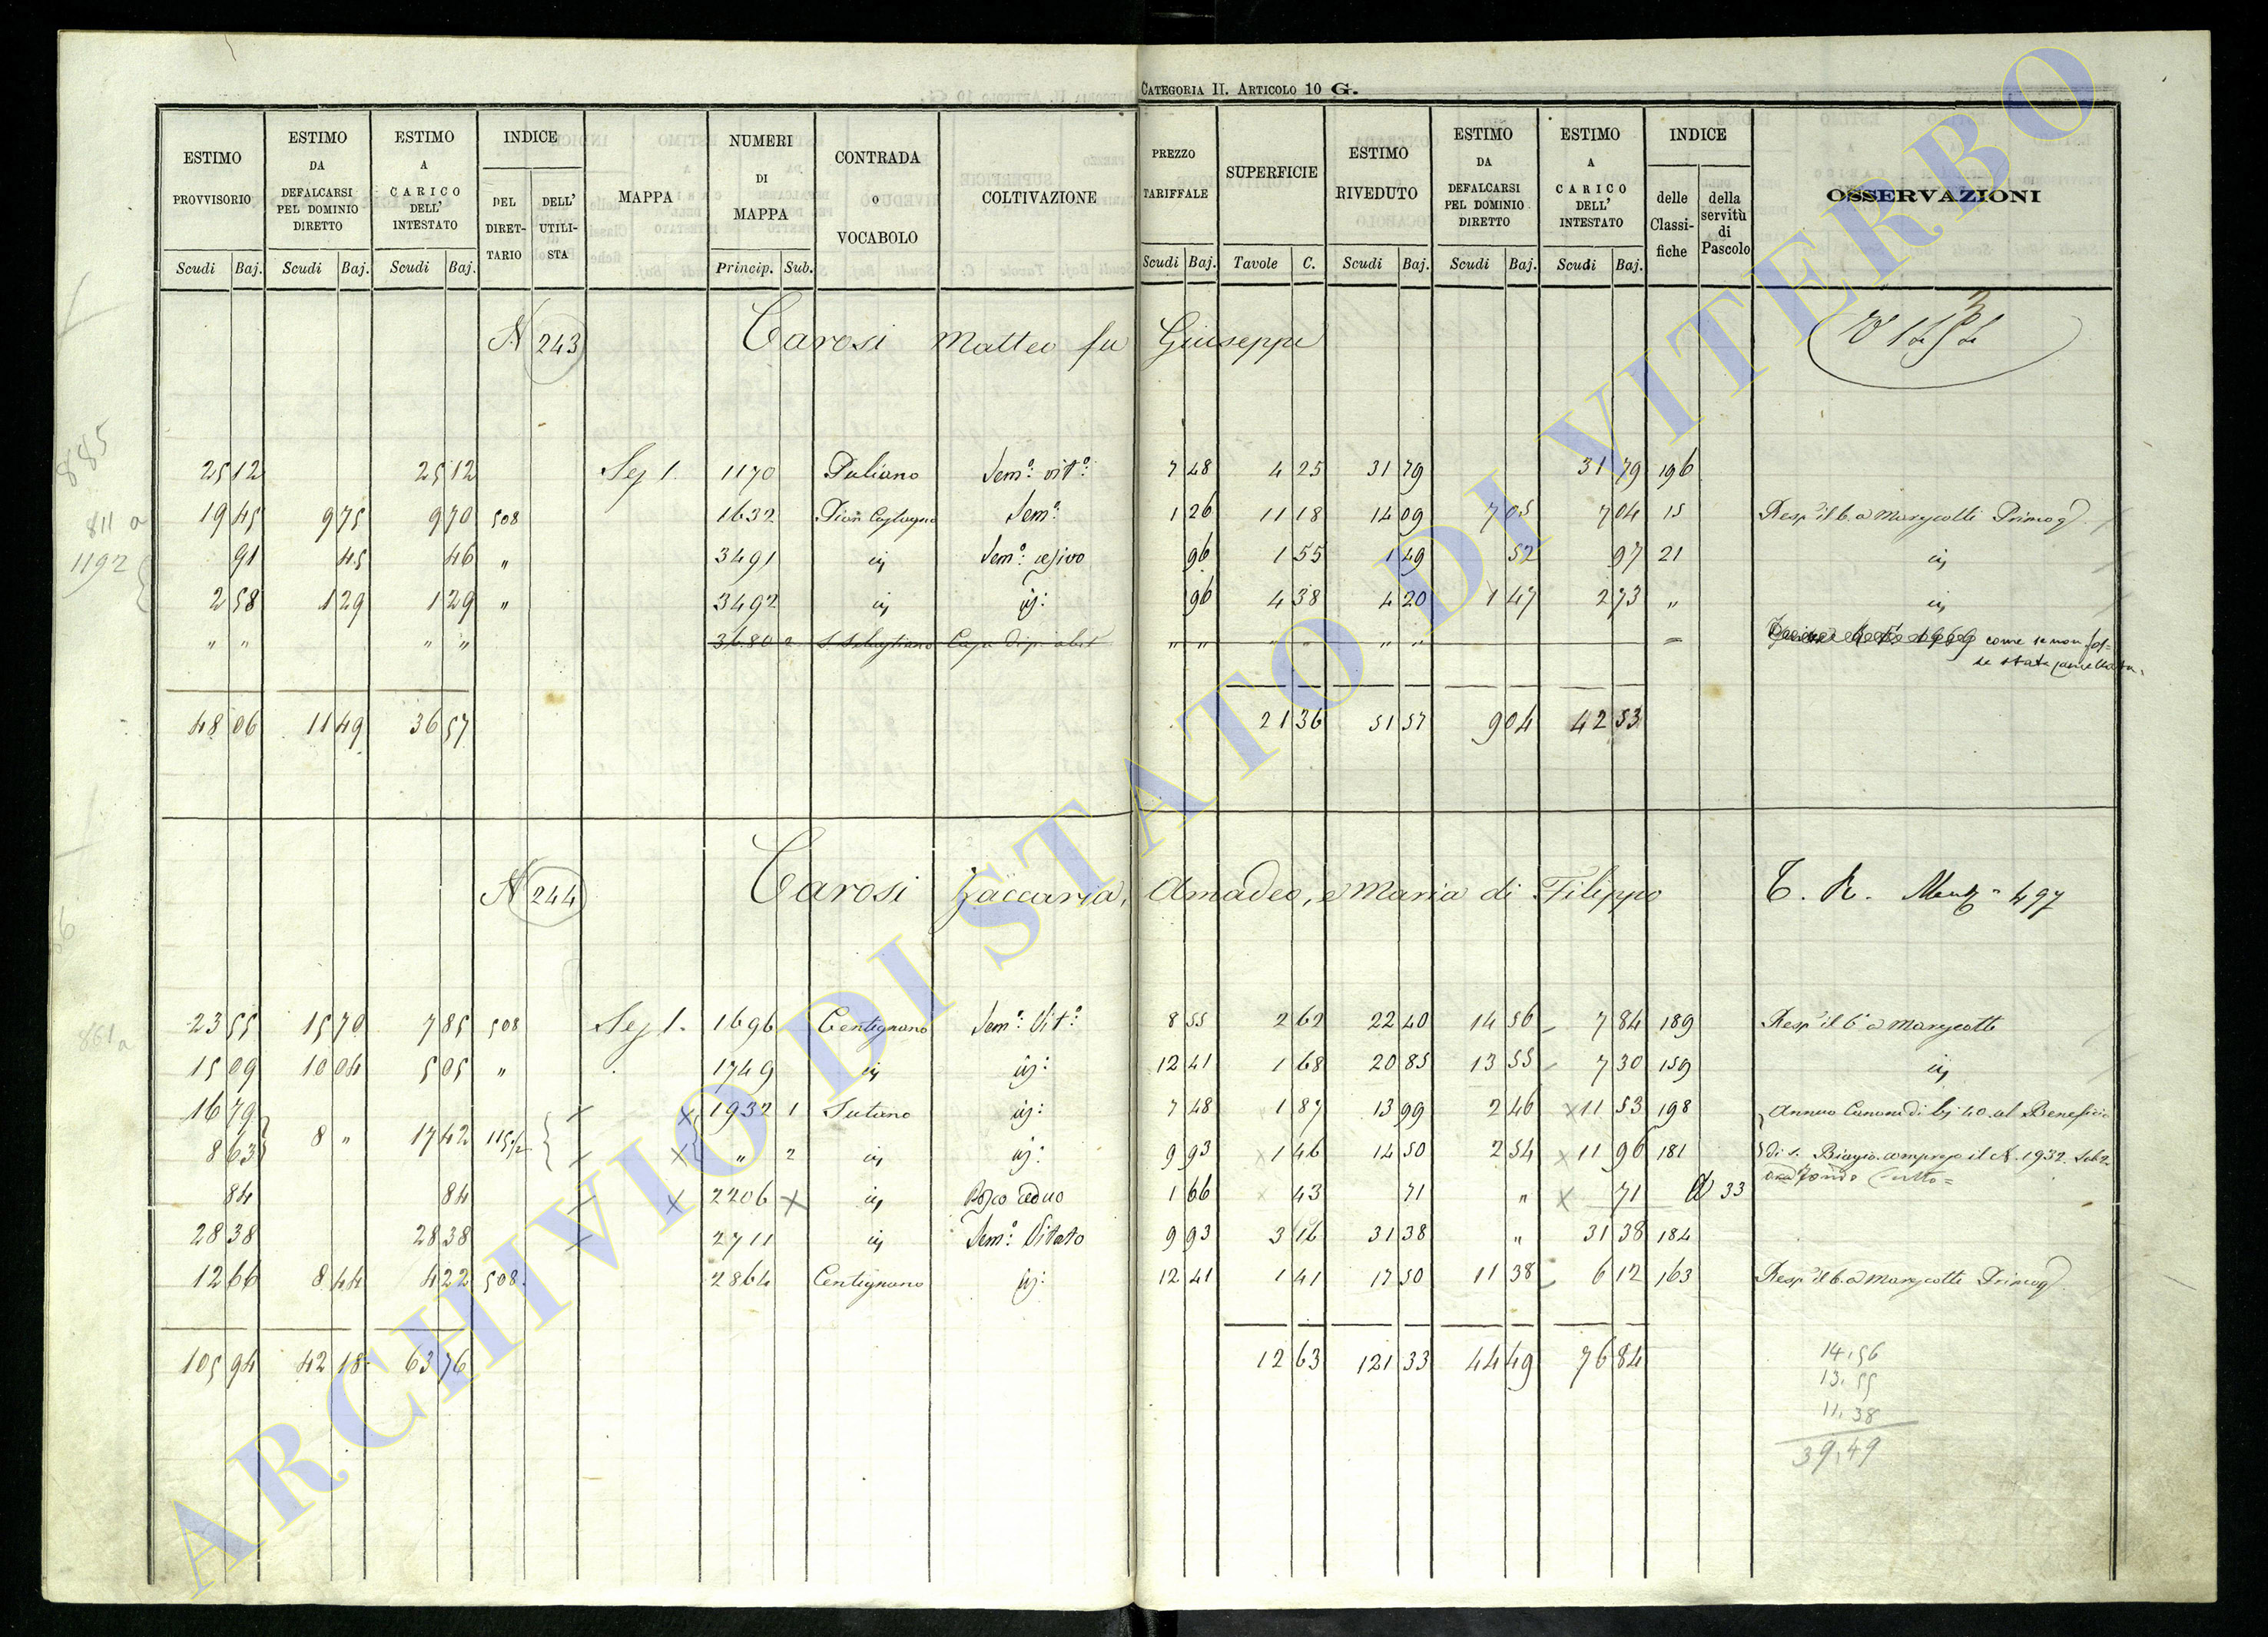 CATEGORIA II. ARTICOLO 10 G.
ESTIMO PROVVISORIO | ESTIMO DA DEFALCARSI PEL DOMINIO DIRETTO | ESTIMO A CARICO DELL' INTESTATO | INDICE DEL DIRET-TARIO | DELL' UTILI-STA | MAPPA | NUMERI DI MAPPA | CONTRADA o VOCABOLO | COLTIVAZIONE | PREZZO TARIFFALE | SUPERFICIE | ESTIMO RIVEDUTO | ESTIMO DA DEFALCARSI PEL DOMINIO DIRETTO | ESTIMO A CARICO DELL' INTESTATO | INDICE delle Classi-fiche | della servitù di Pascolo | OSSERVAZIONI
Scudi Baj. Scudi Baj. Scudi Baj. Princip. Sub. Scudi Baj. Tavole C. Scudi Baj. Scudi Baj. Scudi Baj.
N 243 Carosi Matteo fu Giuseppe
885
25 12 25 12 Sez 1. 1170 Puliano Sem.o vit.o 7 48 4 25 31 79 31 79 196
811 a
19 45 9 75 9 70 508 1632 Sem.o 1 26 11 18 14 09 7 05 7 04 15 Resp il b. a Marescotti Primog
1192
91 45 46 " 3491 id Sem.o cesivo 96 1 55 1 49 52 97 21 id
2 58 1 29 1 29 " 3492 id id: 96 4 38 4 20 1 47 2 73 " id
" " " " 3680 2 S. Sebastiano Casa di p. abit " " " " " " come se non fos=
se stata cancellata.
48 06 11 49 36 57 21 36 51 57 9 04 42 53
N 244 Carosi Zaccaria, Amadeo, e Maria di Filippo T. R. 497
861 a
23 55 15 70 7 85 508 Sez 1. 1696 Centignano Sem.o Vit.o 8 55 2 62 22 40 14 56 7 84 189 Resp il b a Marescotti
15 09 10 04 5 05 " 1749 id id: 12 41 1 68 20 85 13 55 7 30 159 id
16 79 1932 1 Sutano id: 7 48 1 87 13 99 2 46 11 53 198 Annuo Canone di bj 40 al Beneficio
8 63 8 " 17 42 115 1/2 " 2 id id: 9 93 1 46 14 50 2 54 11 96 181 di S. Biagio compreso il N. 1932 Sub 2
84 84 2206 id Bosco ceduo 1 66 43 71 " 71 33
28 38 28 38 2711 id Sem.o Vitato 9 93 3 16 31 38 " 31 38 184
12 66 8 44 4 22 508. 2864 Centignano id: 12 41 1 41 17 50 11 38 6 12 163 Resp il b. a Marescotti Primog
105 94 42 18 63 76 12 63 121 33 44 49 76 84
14,56
13,55
11,38
39,49
ARCHIVIO DI STATO DI VITERBO